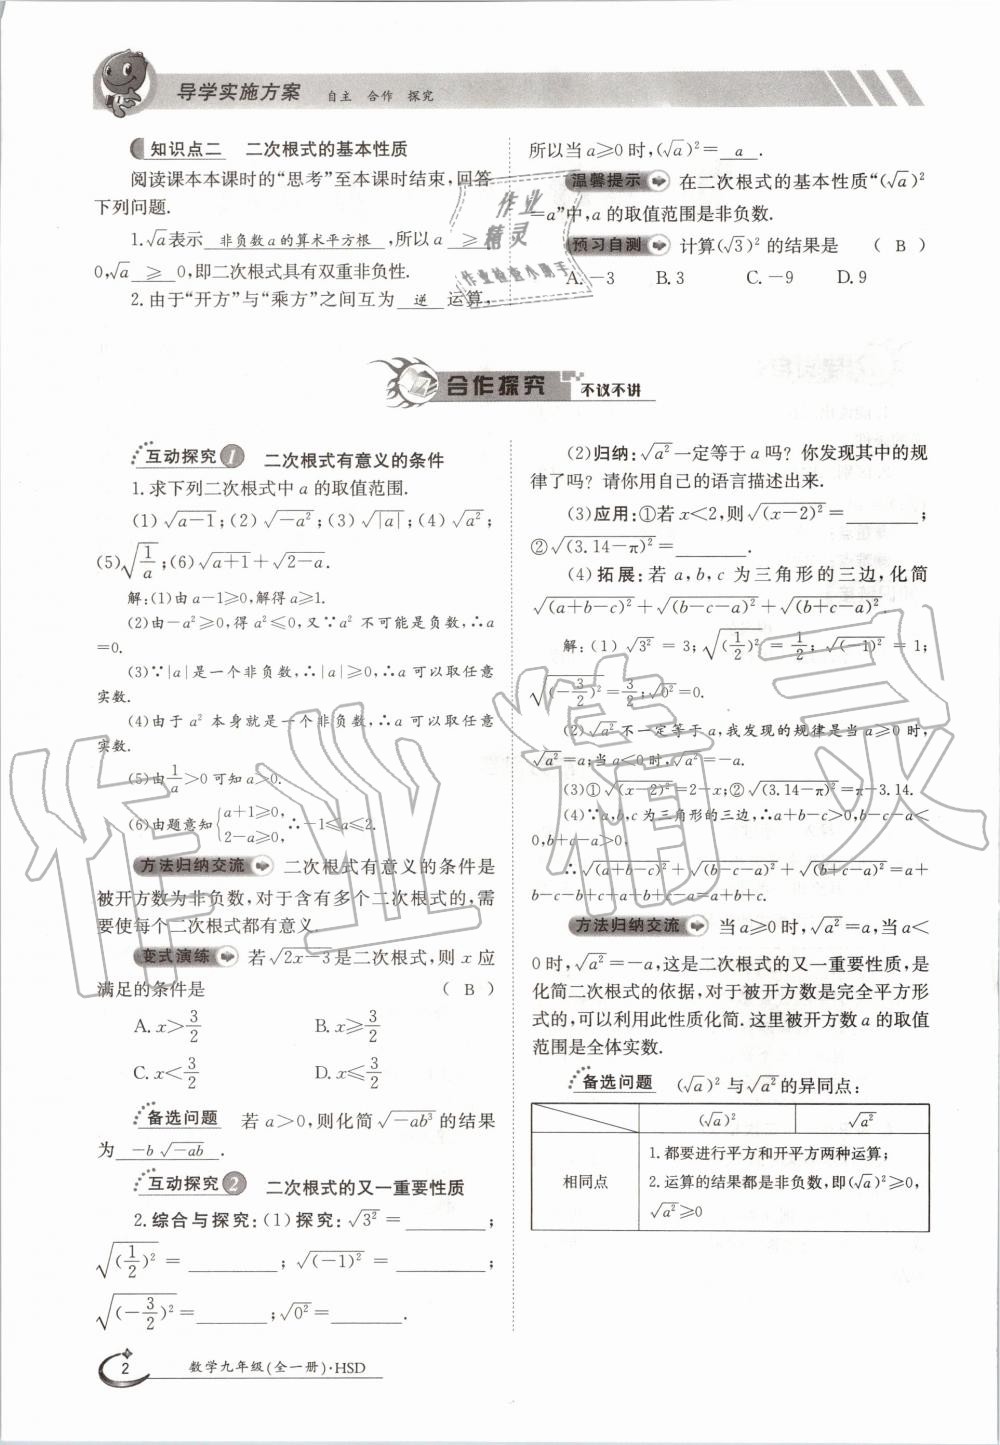 导学实施方案 自主 合作 探究
知识点二 二次根式的基本性质
阅读课本本课时的“思考”至本课时结束,回答
下列问题.
1.√a表示 非负数a的算术平方根 ,所以a ≥
0,√a ≥ 0,即二次根式具有双重非负性.
2.由于“开方”与“乘方”之间互为 逆 运算,
所以当a≥0时,(√a)²= a .
温馨提示 在二次根式的基本性质“(√a)²
=a”中,a的取值范围是非负数.
预习自测 计算(√3)²的结果是 ( B )
A.-3 B.3 C.-9 D.9
作业
精灵
作业检查小助手
合作探究 不议不讲
互动探究1 二次根式有意义的条件
1.求下列二次根式中a的取值范围.
(1)√(a-1);(2)√(-a²);(3)√|a|;(4)√(a²);
(5)√(1/a);(6)√(a+1)+√(2-a).
解:(1)由a-1≥0,解得a≥1.
(2)由-a²≥0,得a²≤0,又∵a²不可能是负数,∴a
=0.
(3)∵|a|是一个非负数,∴|a|≥0,∴a可以取任意
实数.
(4)由于a²本身就是一个非负数,∴a可以取任意
实数.
(5)由1/a>0可知a>0.
(6)由题意知{a+1≥0, 2-a≥0, ∴-1≤a≤2.
方法归纳交流 二次根式有意义的条件是
被开方数为非负数,对于含有多个二次根式的,需
要使每个二次根式都有意义.
变式演练 若√(2x-3)是二次根式,则x应
满足的条件是 ( B )
A.x>3/2 B.x≥3/2
C.x<3/2 D.x≤3/2
备选问题 若a>0,则化简√(-ab³)的结果
为 -b√(-ab) .
互动探究2 二次根式的又一重要性质
2.综合与探究:(1)探究:√(3²)=________;
√((1/2)²)=________;√((-1)²)=________;
√((-3/2)²)=________;√(0²)=________.
(2)归纳:√(a²)一定等于a吗?你发现其中的规
律了吗?请你用自己的语言描述出来.
(3)应用:①若x<2,则√((x-2)²)=________;
②√((3.14-π)²)=________.
(4)拓展:若a,b,c为三角形的三边,化简
√((a+b-c)²)+√((b-c-a)²)+√((b+c-a)²).
解:(1)√(3²)=3;√((1/2)²)=1/2;√((-1)²)=1;
√((-3/2)²)=3/2;√(0²)=0.
(2)√(a²)不一定等于a,我发现的规律是当a≥0时,
√(a²)=a;当a<0时,√(a²)=-a.
(3)①√((x-2)²)=2-x;②√((3.14-π)²)=π-3.14.
(4)∵a,b,c为三角形的三边,∴a+b-c>0,b-c-a<
0,b+c-a>0,
∴√((a+b-c)²)+√((b-c-a)²)+√((b+c-a)²)=a+
b-c-b+c+a+b+c-a=a+b+c.
方法归纳交流 当a≥0时,√(a²)=a,当a<
0时,√(a²)=-a,这是二次根式的又一重要性质,是
化简二次根式的依据,对于被开方数是完全平方形
式的,可以利用此性质化简.这里被开方数a的取值
范围是全体实数.
备选问题 (√a)²与√(a²)的异同点:
(√a)² √(a²)
相同点
1.都要进行平方和开平方两种运算;
2.运算的结果都是非负数,即(√a)²≥0,
√(a²)≥0
2 数学九年级(全一册)·HSD
作业精灵